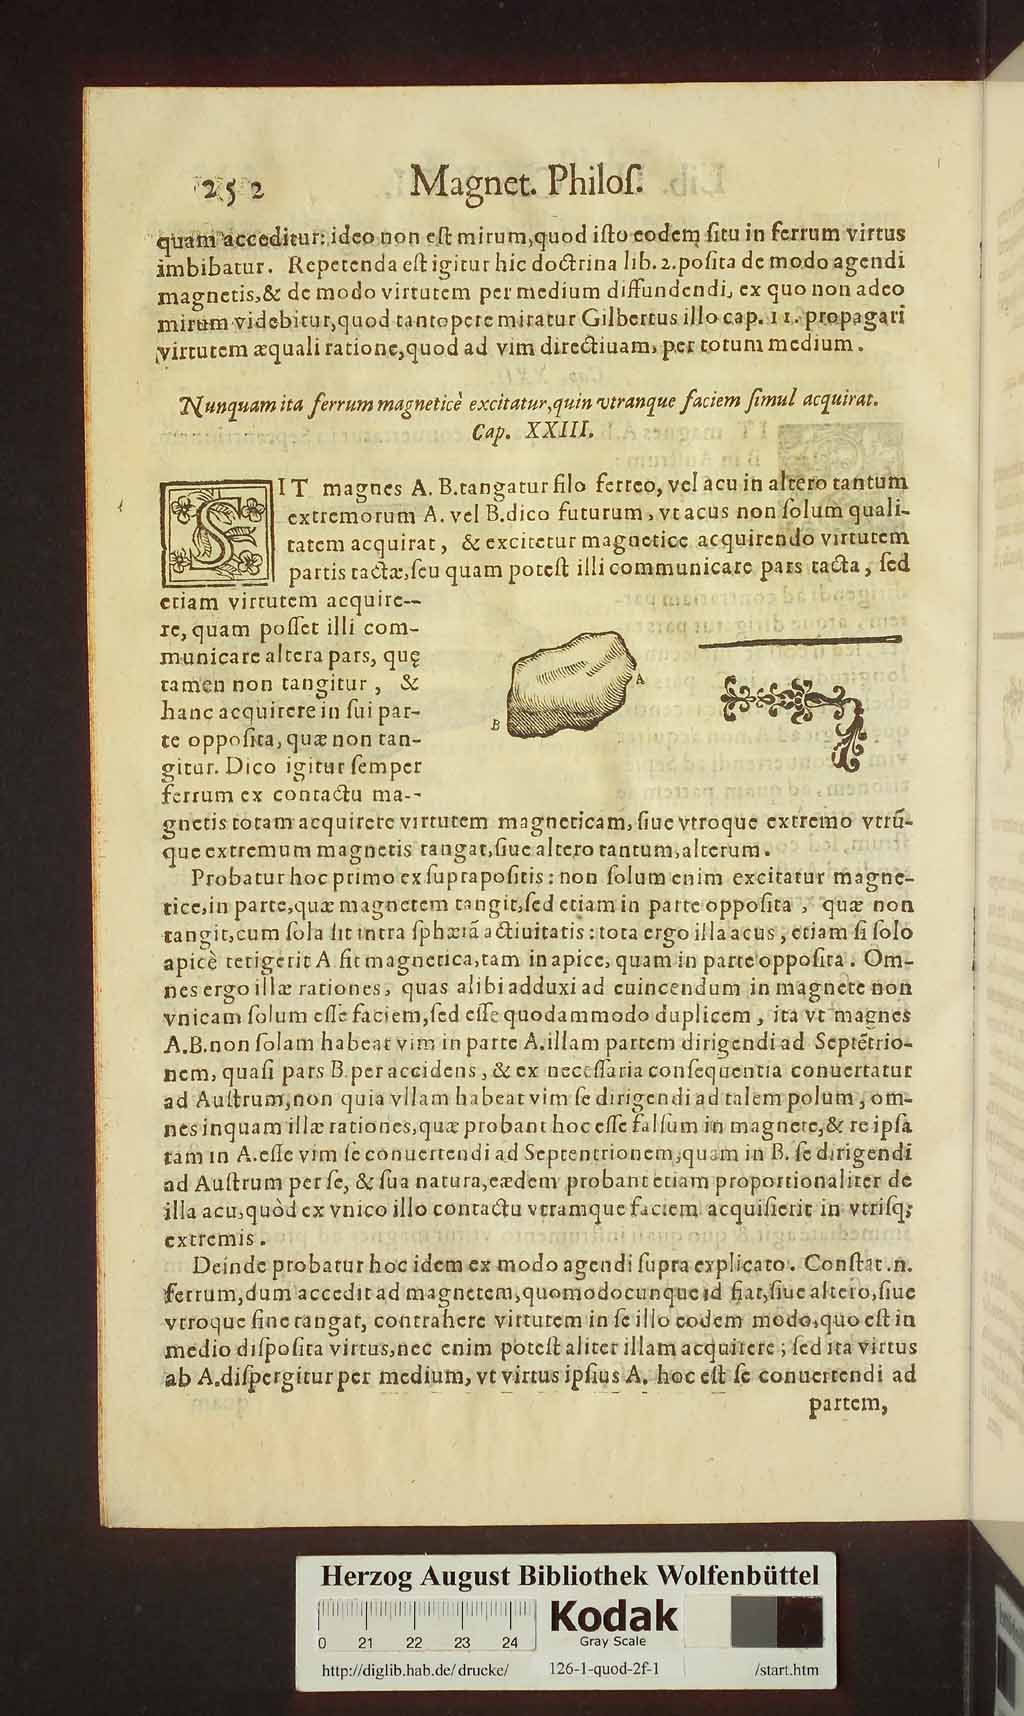 252 Magnet. Philoſ.
quam acceditur: ideo non eſt mirum, quod iſto eodem ſitu in ferrum virtus
imbibatur. Repetenda eſt igitur hic doctrina lib. 2. poſita de modo agendi
magnetis, & de modo virtutem per medium diffundendi, ex quo non adeo
mirum videbitur, quod tantopere miratur Gilbertus illo cap. 11. propagari
virtutem æquali ratione, quod ad vim directiuam, per totum medium.
Nunquam ita ferrum magneticè excitatur, quin vtranque faciem ſimul acquirat.
Cap. XXIII.
SIT magnes A. B. tangatur filo ferreo, vel acu in altero tantum
extremorum A. vel B. dico futurum, vt acus non ſolum quali-
tatem acquirat, & excitetur magnetice acquirendo virtutem
partis tactæ, ſeu quam poteſt illi communicare pars tacta, ſed
etiam virtutem acquire-
re, quam poſſet illi com-
municare altera pars, quę
tamen non tangitur, &
hanc acquirere in ſui par-
te oppoſita, quæ non tan-
gitur. Dico igitur ſemper
ferrum ex contactu ma-
A
B
gnetis totam acquirere virtutem magneticam, ſiue vtroque extremo vtrū-
que extremum magnetis tangat, ſiue altero tantum, alterum.
Probatur hoc primo ex ſuprapoſitis: non ſolum enim excitatur magne-
tice, in parte, quæ magnetem tangit, ſed etiam in parte oppoſita, quæ non
tangit, cum ſola ſit intra ſphærā actiuitatis: tota ergo illa acus, etiam ſi ſolo
apicè tetigerit A fit magnetica, tam in apice, quam in parte oppoſita. Om-
nes ergo illæ rationes, quas alibi adduxi ad euincendum in magnete non
vnicam ſolum eſſe faciem, ſed eſſe quodammodo duplicem, ita vt magnes
A.B. non ſolam habeat vim in parte A. illam partem dirigendi ad Septētrio-
nem, quaſi pars B. per accidens, & ex neceſſaria conſequentia conuertatur
ad Auſtrum, non quia vllam habeat vim ſe dirigendi ad talem polum, om-
nes inquam illæ rationes, quæ probant hoc eſſe falſum in magnete, & re ipſa
tam in A. eſſe vim ſe conuertendi ad Septentrionem, quam in B. ſe dirigendi
ad Auſtrum per ſe, & ſua natura, eædem probant etiam proportionaliter de
illa acu, quòd ex vnico illo contactu vtramque faciem acquiſierit in vtriſq;
extremis.
Deinde probatur hoc idem ex modo agendi ſupra explicato. Conſtat .n.
ferrum, dum accedit ad magnetem, quomodocunque id fiat, ſiue altero, ſiue
vtroque fine tangat, contrahere virtutem in ſe illo eodem modo, quo eſt in
medio diſpoſita virtus, nec enim poteſt aliter illam acquirere; ſed ita virtus
ab A. diſpergitur per medium, vt virtus ipſius A. hoc eſt ſe conuertendi ad
partem,
Herzog August Bibliothek Wolfenbüttel
0 21 22 23 24
Kodak
Gray Scale
http://diglib.hab.de/drucke/ 126-1-quod-2f-1 /start.htm